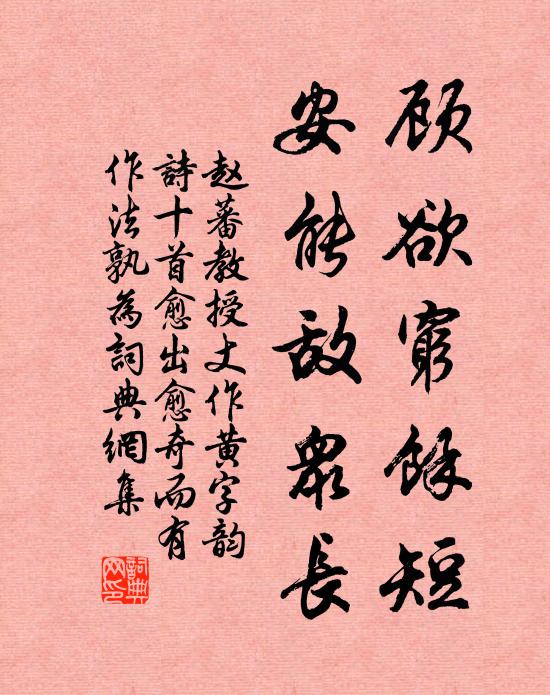 顾欲穷餘短
安能敌众長
赵蕃教授丈作黄字韵
詩十首愈出愈奇而有
作法孰為詞典網集
詞典网印